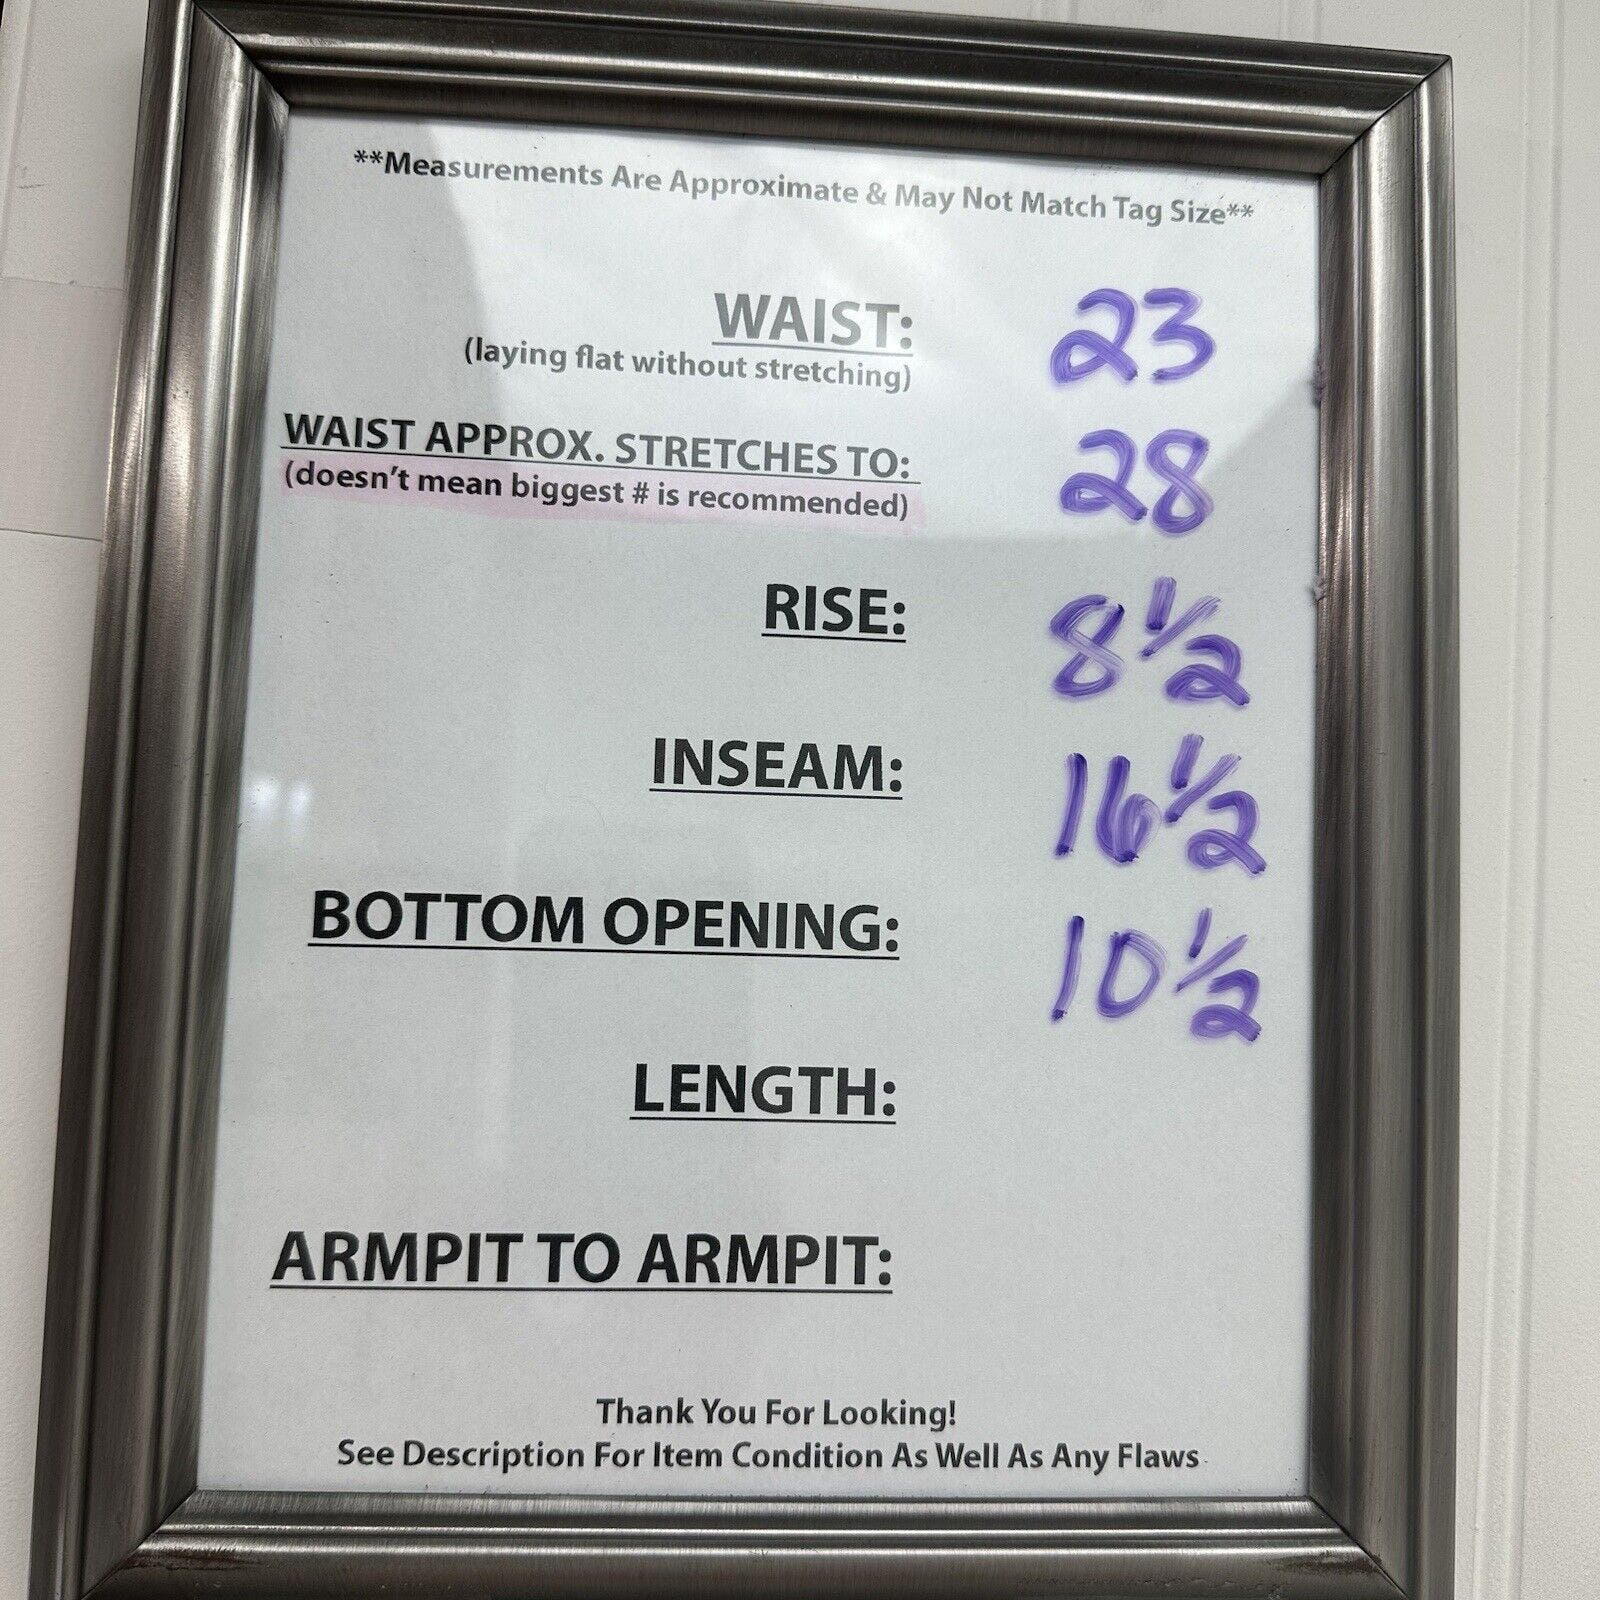 **Measurements Are Approximate & May Not Match Tag Size**
WAIST: 23
(laying flat without stretching)
WAIST APPROX. STRETCHES TO: 28
(doesn't mean biggest # is recommended)
RISE: 8 1/2
INSEAM: 16 1/2
BOTTOM OPENING: 10 1/2
LENGTH:
ARMPIT TO ARMPIT:
Thank You For Looking!
See Description For Item Condition As Well As Any Flaws